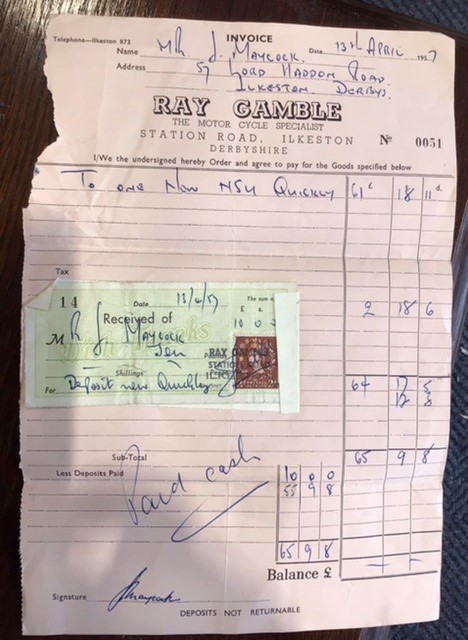 INVOICE
Telephone—Ilkeston 873
Name MR. J. MAYCOCK. Date 13th APRIL 1957
Address 57 LORD HADDON ROAD.
ILKESTON. DERBYS.
RAY GAMBLE
THE MOTOR CYCLE SPECIALIST
STATION ROAD, ILKESTON
DERBYSHIRE
No 0051
I/We the undersigned hereby Order and agree to pay for the Goods specified below
To ONE New NSU QUICKLY 61£ 18 11d.
Tax
2 18 6
14 Date 13/4/57 The sum of
Received of £ s.
MR J. MAYCOCK 10 0 0
Ten
Shillings
For Deposit new Quickly
64 17 5
12 3
Sub-Total 65 9 8
Less Deposits Paid 10 0 0
55 9 8
Paid cash
65 9 8
Balance £
Signature J Maycock
DEPOSITS NOT RETURNABLE